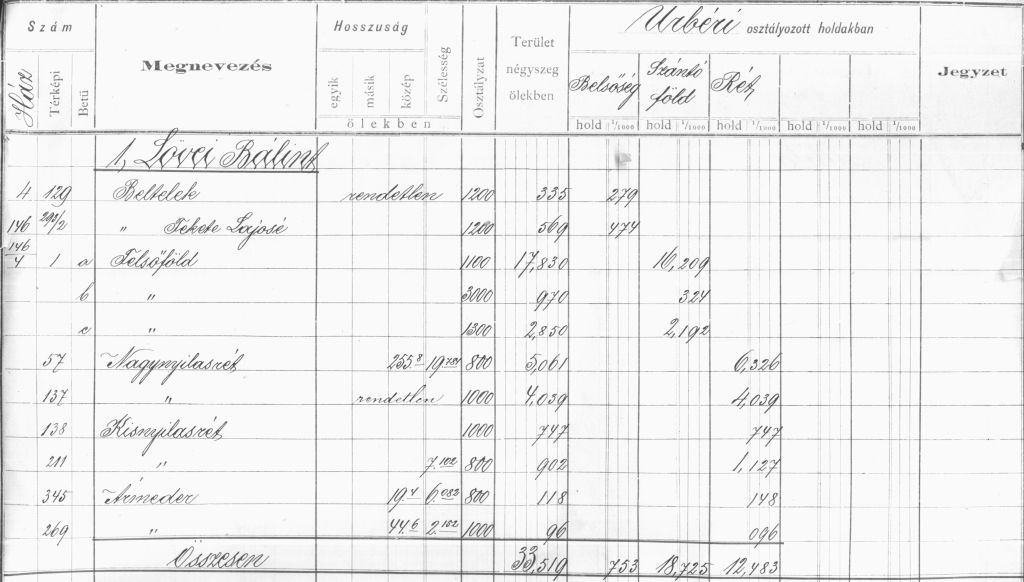 Szám Hosszuság Urbéri osztályozott holdakban
Ház Térképi Betű Megnevezés egyik másik közép Szélesség Osztályzat Terület négyszeg ölekben Belsőség Szántó föld Rét Jegyzet
ölekben hold 1/1000 hold 1/1000 hold 1/1000 hold 1/1000 hold 1/1000
1, Lövei Bálint
4 129 Beltelek rendetlen 1200 335 279
146 293/2 " Fekete Lajosé 1200 569 474
146/4 1 a Felsőföld 1100 17,830 16,209
b " 3000 970 324
c " 1300 2,850 2,192
57 Nagynyilasrét 255.8 19.784 800 5,061 6,326
137 " rendetlen 1000 4,039 4,039
138 Kisnyilasrét 1000 747 747
211 " 7.102 800 902 1,127
345 Ármeder 19.4 6.082 800 118 148
269 " 44.6 2.152 1000 96 096
Összesen 33,519 753 18,725 12,483